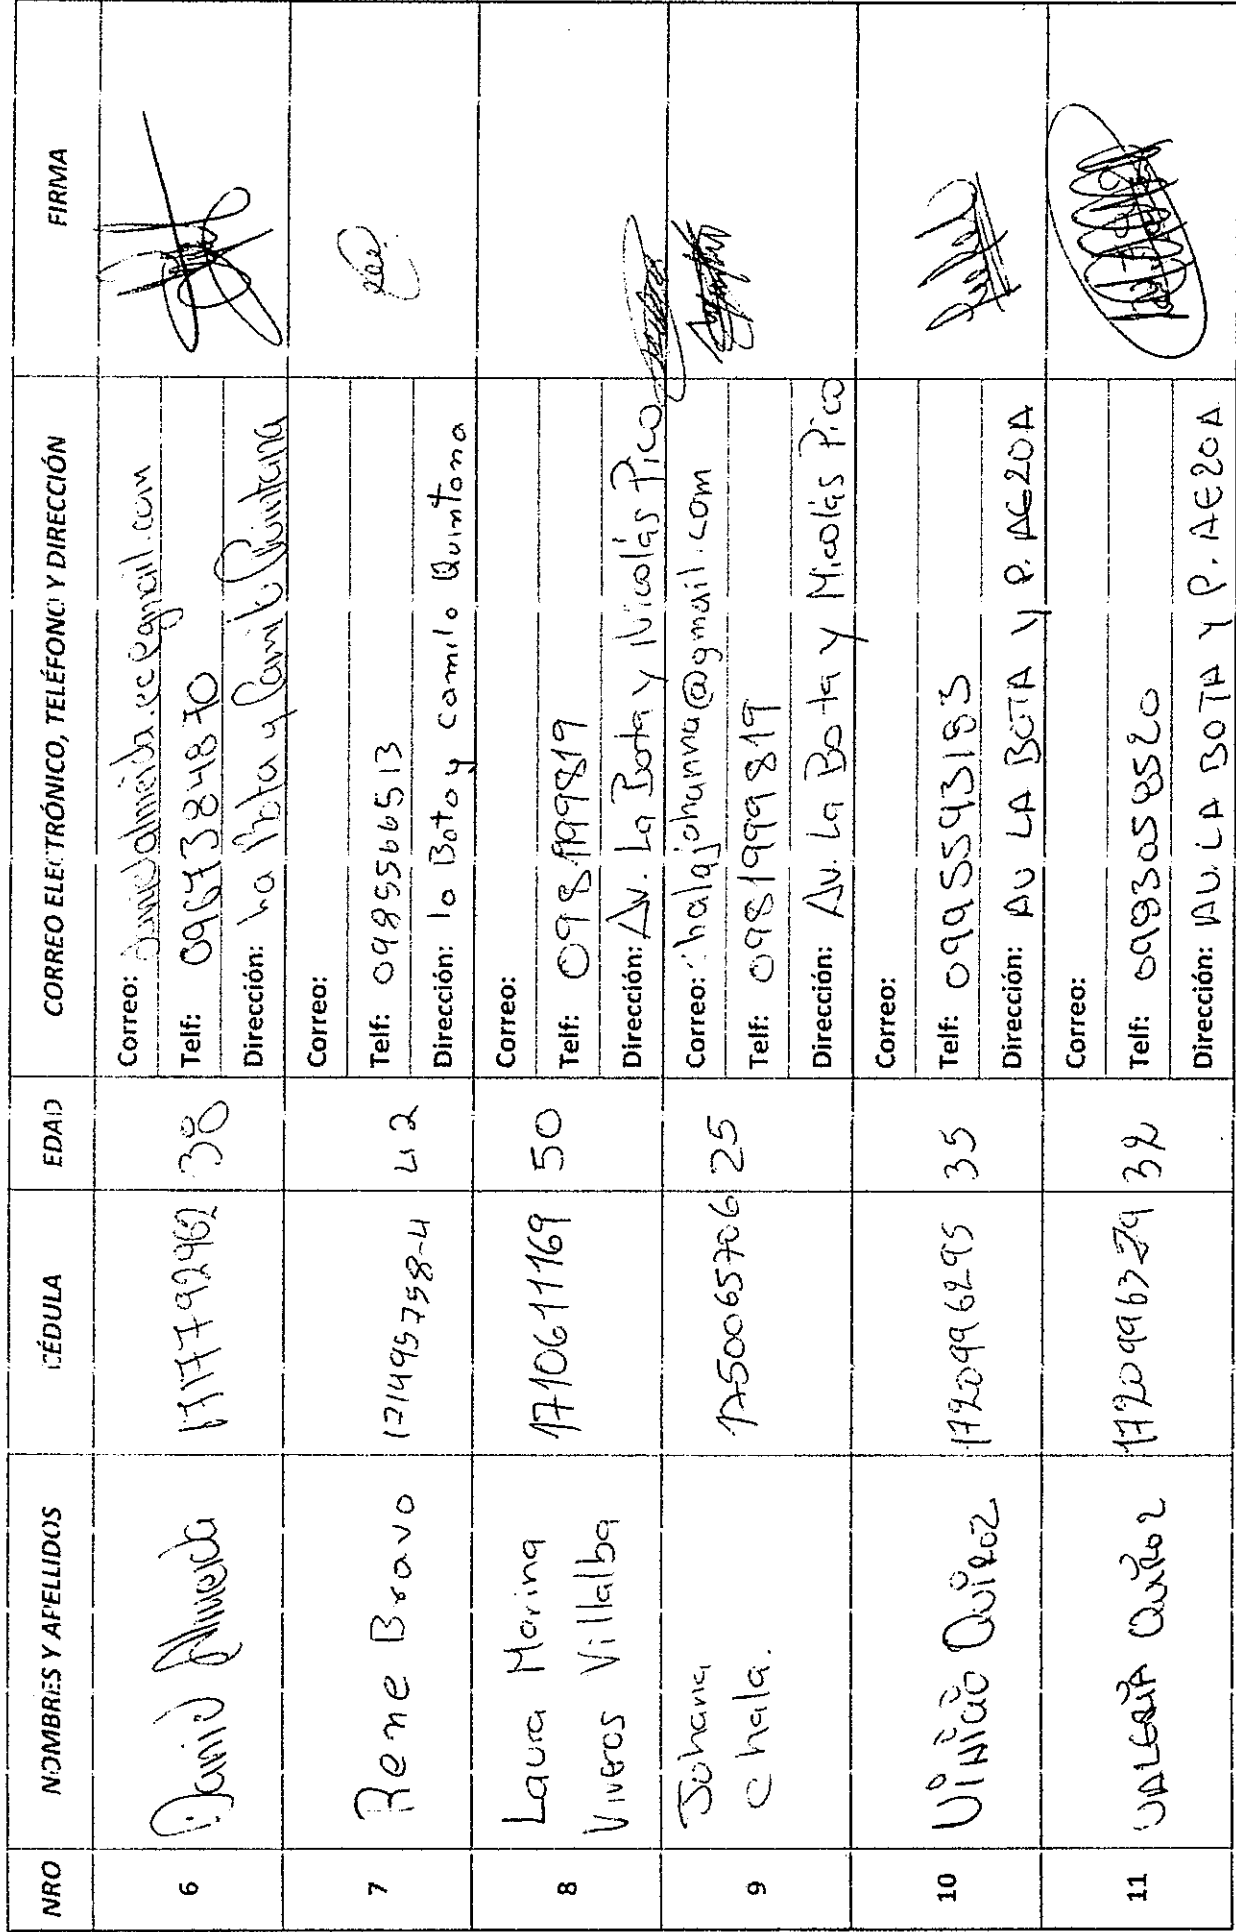 NRO NOMBRES Y APELLIDOS CÉDULA EDAD CORREO ELECTRÓNICO, TELÉFONO Y DIRECCIÓN FIRMA
6 David Almeida 1717792962 38
Correo:
Telf: 0967384870
Dirección: La Bota y Camilo Quintana
7 Rene Bravo 171495758-4 42
Correo:
Telf: 0985566513
Dirección: la Bota y camilo Quintana
8 Laura Marina
Viveros Villalba
1710611169 50
Correo:
Telf: 0981999819
Dirección: Av. La Bota y Nicolás Pico
9 Johana
Chala.
1750065706 25
Correo: chalajohanna@gmail.com
Telf: 0981999819
Dirección: Av. La Bota y Nicolás Pico
10 VINICIO QUIROZ 1720996295 35
Correo:
Telf: 0995593183
Dirección: AV LA BOTA Y P. AE20A
11 VALERIA QUIROZ 1720996379 32
Correo:
Telf: 0983058520
Dirección: AV. LA BOTA Y P. AE20A